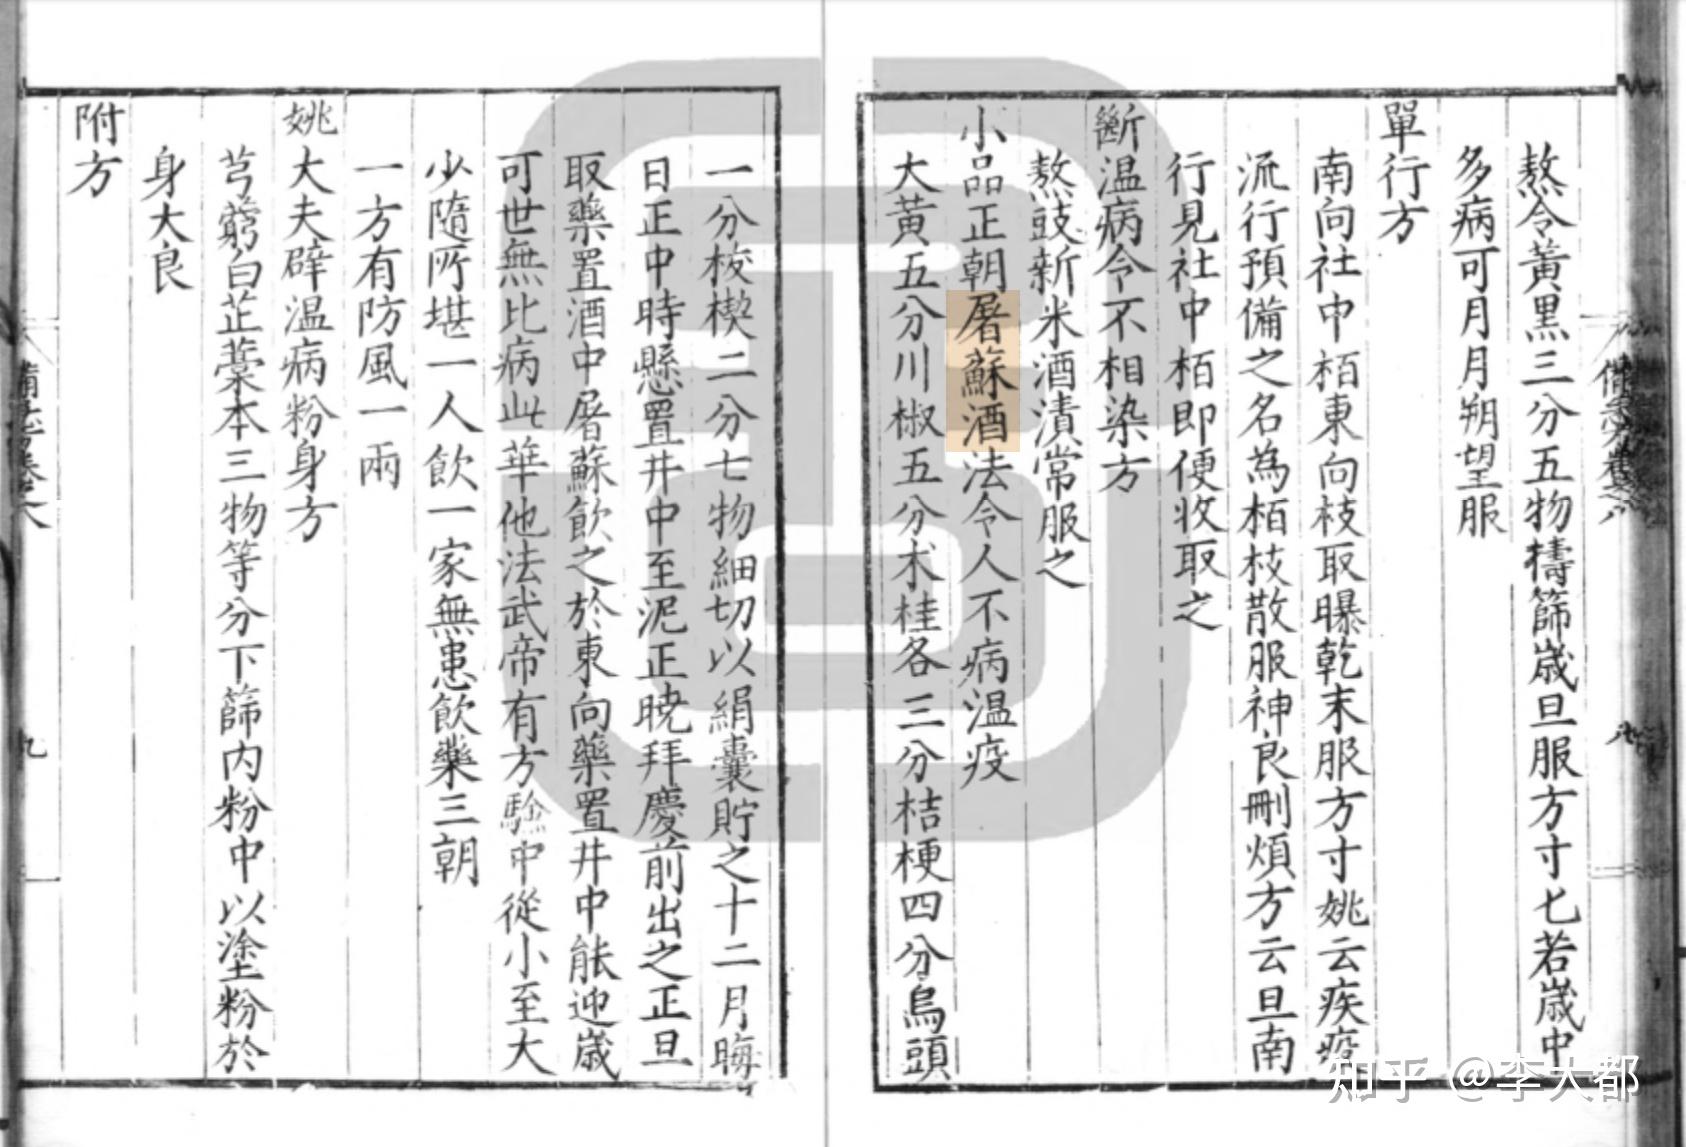 熬令黃黑三分五物擣篩歲旦服方寸匕若歲中
多病可月月朔望服
單行方
南向社中栢東向枝取曝乾末服方寸姚云疾疫
流行預備之名為栢枝散服神良刪煩方云旦南
行見社中栢即便收取之
斷温病令不相染方
熬豉新米酒漬常服之
小品正朝屠蘇酒法令人不病温疫
大黃五分川椒五分朮桂各三分桔梗四分烏頭
一分菝楔二分七物細切以絹囊貯之十二月晦
日正中時懸置井中至泥正曉拜慶前出之正旦
取藥置酒中屠蘇飲之於東向藥置井中能迎歲
可世無此病此華他法武帝有方驗中從小至大
少隨所堪一人飲一家無患飲藥三朝
一方有防風一兩
姚大夫辟温病粉身方
芎藭白芷藁本三物等分下篩內粉中以塗粉於
身大良
附方
九
知乎 @李大都